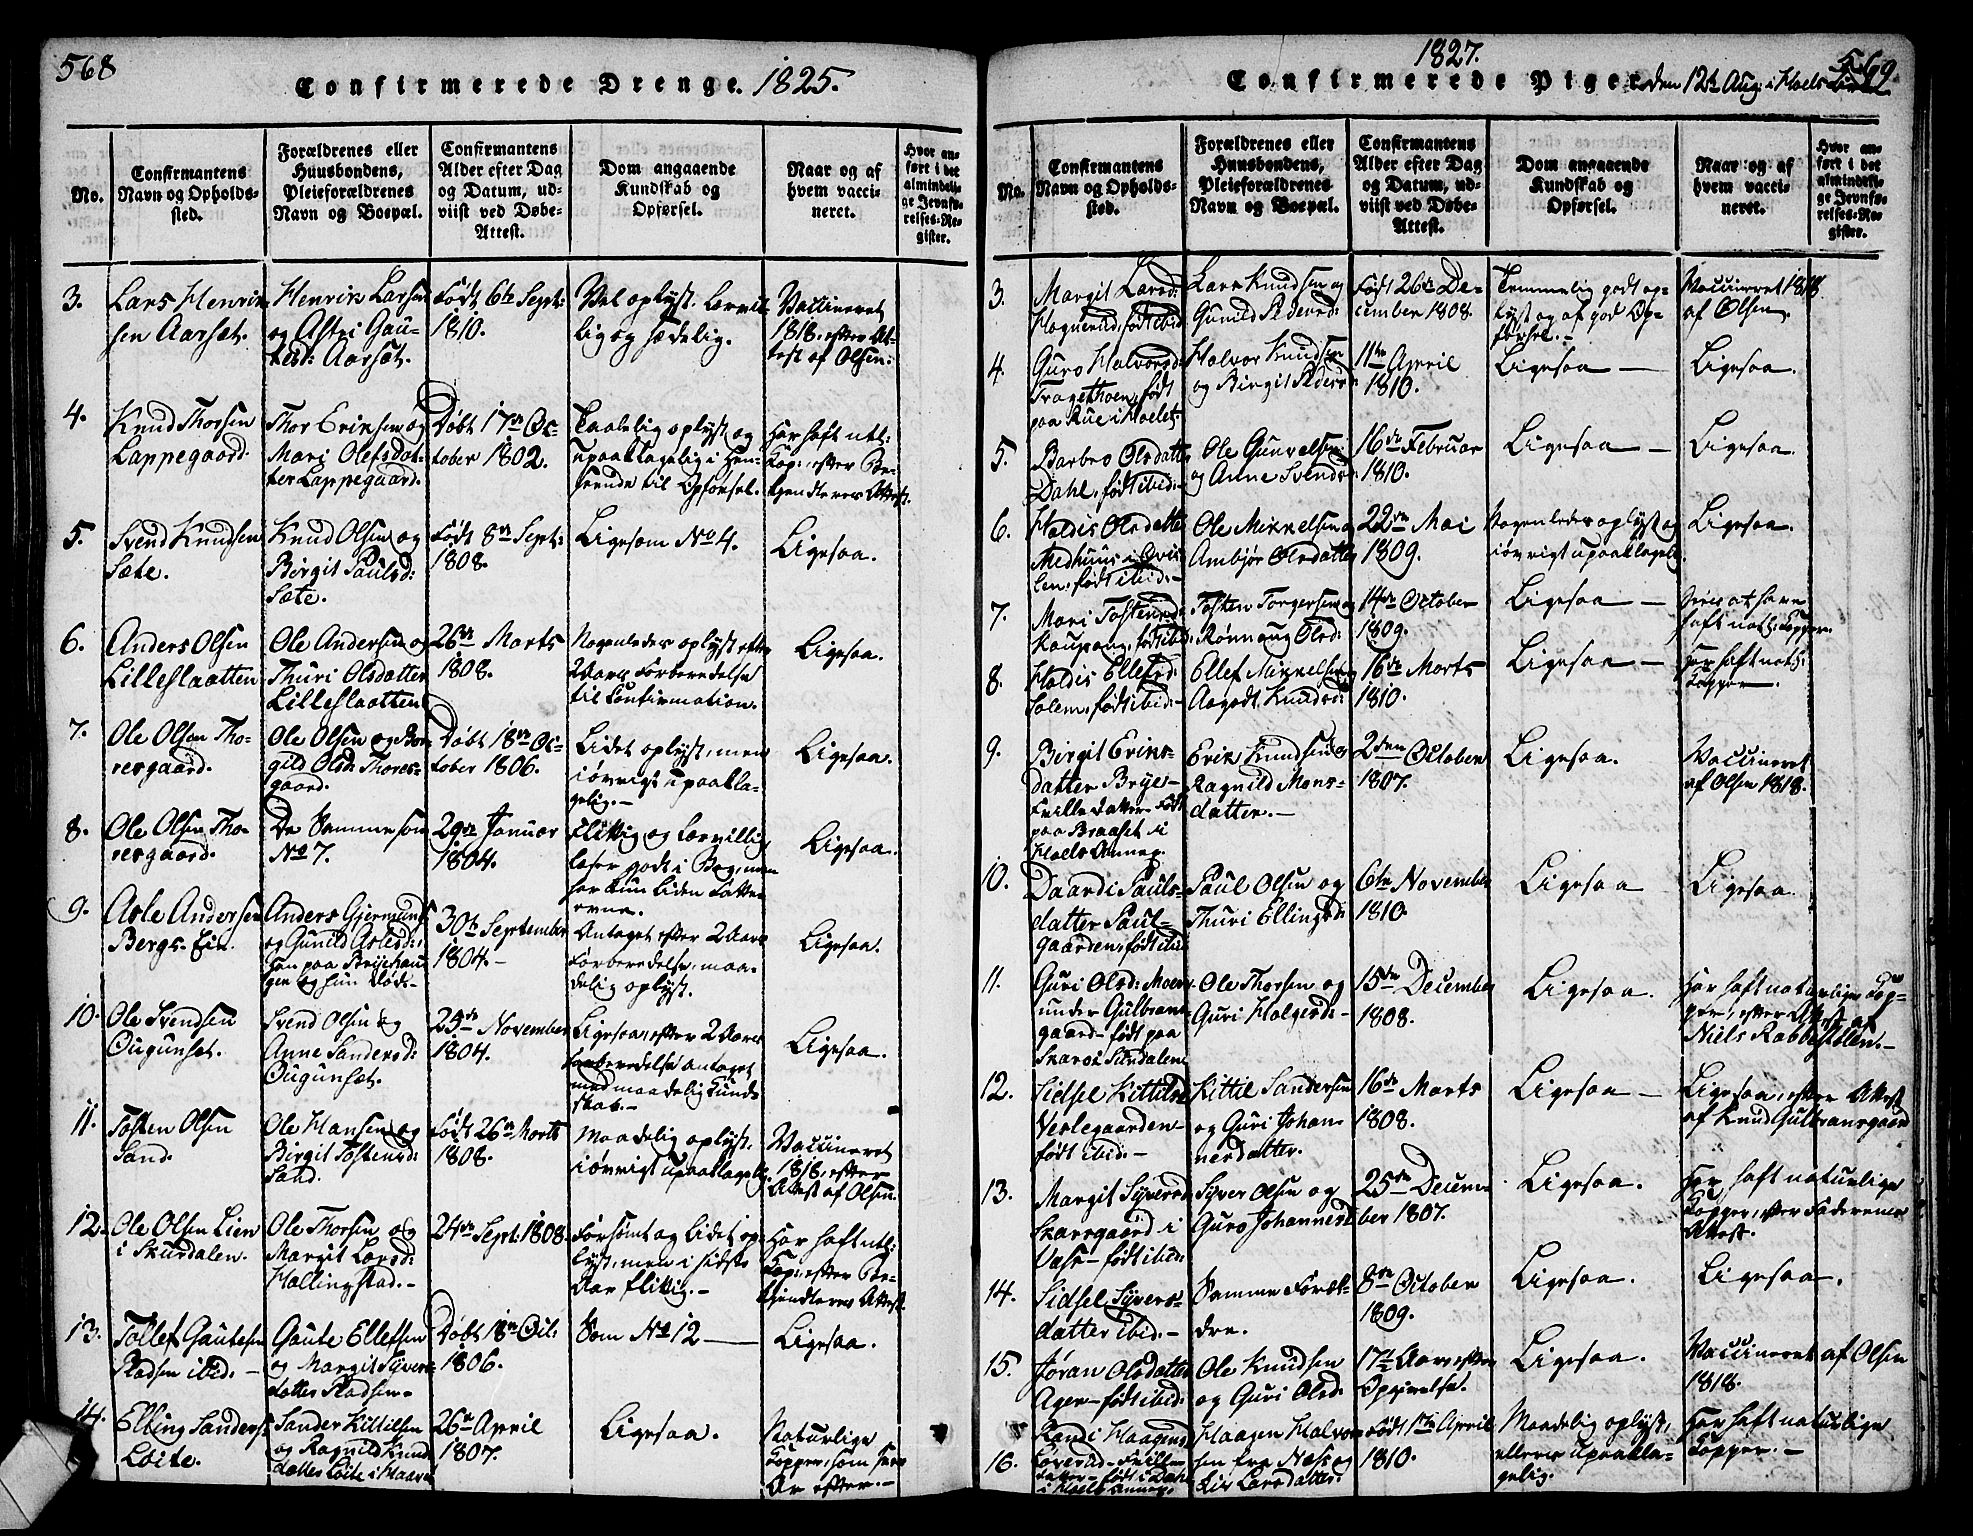 568
Confirmerede Drenge. 1825.
No.
Confirmantens
Navn og Opholds-
sted.
Forældrenes eller
Huusbondens,
Pleieforældrenes
Navn og Boepæl.
Confirmantens
Alder efter Dag
og Datum, ud-
viist ved Døbe-
Attest.
Dom angaaende
Kundskab og
Opførsel.
Naar og af
hvem vacci-
neret.
Hvor an-
ført i det
almindeli-
ge Jevnfø-
relses-Re-
gister.
3.
Lars Henrik-
sen Aarset.
Henrik Larsen
og Astri Gau-
tesd: Aarset.
Født 6te Sept:
1810.
Vel oplyst. Lærvil-
lig og sædelig.
Vaccineret
1818. efter At-
test af Olsen:
4.
Knud Thorsen
Lappegaard.
Thor Eriksen og
Mari Olefsdat-
ter Lappegaard.
Døbt 17de Oc-
tober 1802.
Taalelig oplyst og
upaaklagelig i Hen-
seende til Opførsel.
Har haft natl:
Kop: efter Be-
hjendteres Attest.
5.
Svend Knudsen
Sæte.
Knud Olsen og
Birgit Paulsd:
Sæte.
Født 8de Sept:
1808.
Ligesom No 4.
Ligesaa.
6.
Anders Olsen
Lilleslaatten
Ole Andersen og
Thuri Olsdatter
Lilleslaatten
26de Marts
1808.
Nogenledes oplyst efter
2 Aars Forberedelse
til Confirmation.
Ligesaa.
7.
Ole Olsen Tho-
resgaard.
Ole Olsen og
gild Olsd: Thores-
gaard.
Døbt 18de Oc-
tober 1806.
Lidet oplyst, men
iøvrigt upaakla-
gelig.-
Ligesaa.
8.
Ole Olsen Tho-
resgaard.
De Samme som
No 7.
29de Januar
1804.
Flittig og Lærvillig,
læser godt i Bog, men
har kun liden Fatte-
evne.
Ligesaa.
9.
Asle Andersen
Bergs-Eie.
Anders Gjermunds:
og Gunild Aslesd:
30te September
1804.-
Antaget efter 2 Aars
Forberedelse, maa-
delig oplyst.
Ligesaa.
10.
Ole Svendsen
Ougunset.
Svend Olsen og
Anne Sandersd:
Ougunset.
25de November
1804.
Ligesaa, efter 2 Aars
Forberedelse antaget
med maadelig Kund-
skab.-
Ligesaa.
11.
Tosten Olsen
Sand.
Ole Hansen og
Birgit Tostensd:
Sand.
Født 26de Marts
1808.
Maadelig oplyst.
iøvrigt upaaklagelig
Vaccineret
1818, efter
Attest af Olsen.
12.
Ole Olsen Lien
i Skurdalen.
Ole Thorsen og
Margit Larsd:
Hallingstad.-
24de Sept: 1808.
Forsømt og lidet op-
lyst, men i sidste
Aar flittig.-
Har haft natl:
Kop: efter Be-
hjendteres Attest.
13.
Tollef Gautesen
Pladsen ibid.-
Gaute Ellefsen
og Margit Syvers-
datter Pladsen-
Døbt 18de Oct:
1806.
Som No 12
Ligesaa.
14.
Elling Sanders:
Løite.
Sander Kittilsen
og Ragnild Knuds-
datter Løite i
26de April
1807.
Ligesaa.
Naturlige
Kopper, som
Ar efter.-
1827.
569.
Confirmerede Piger den 12te Aug: i Hoels
No.
Confirmantens
Navn og Opholds-
sted.
Forældrenes eller
Huusbondens,
Pleieforældrenes
Navn og Boepæl.
Confirmantens
Alder efter Dag
og Datum, ud-
viist ved Døbe-
Attest.
Dom angaaende
Kundskab og
Opførsel.
Naar og af
hvem vacci-
neret.
Hvor an-
ført i det
almindeli-
ge Jevnfø-
relses-Re-
gister.
3.
Margit Larsd:
Hognerud, født ibid
Lars Knudsen og
Gunild Pedersd:
Født 26de De-
cember 1808.
Temmelig godt op-
lyst og af god Op-
førsel.-
Vaccineret 1818
af Olsen.
4.
Guro Halvorsd:
Tragethoen, født
paa Rue i Hoelet.
Halvor Knudsen
og Birgit Pedersd:
11te April
1810.
Ligesaa
Ligesaa.
5.
Barbro Olsdatter
Dahl, født ibid:-
Ole Gunvelsen
og Anne Svendsd:
16de Februar
1810.
Ligesaa
Ligesaa.
6.
Haldis Olsdatter
Medhuus
født ibid:-
Ole Mikkelsen og
Ambjør Olsdatter
22de Mai
1809.
Nogenledes oplyst og
iøvrigt upaaklagel:
Ligesaa.
7.
Mari Tostensd:
Kaupang, født ibid:
Tosten Torgersen og
Rønnaug Olsd:
14de October
1809.
Ligesaa
Siges at have
haft natl: Kopper.
8.
Haldis Ellefsd:
Solem, født ibid:-
Ellef Mikkelsen og
Aagodt Knudsd:
16de Marts
1810.
Ligesaa
Har haft natl:
Kopper.
9.
Birgit Eriks-
datter Brye-
Frilledatter Født
paa Braaset i
Hoels Annex.
Erik Knudsen og
Ragnild Mons-
datter.-
2den October
1807.
Ligesaa.
Vaccineret
af Olsen 1818.
10.
Daardi Pauls-
datter Paul-
gaarden, født ibid
Paul Olsen og
Thuri Ellingsd:
6te November
1810.
Ligesaa
Ligesaa.
11.
Guri Olsd: Moen
under Gulbrans-
gaard- født paa
Skaro i Skurdalen
Ole Thorsen og
Guri Holgersd:
15de December
1808.
Ligesaa.
Har haft naturlige Kop-
per, efter Attest af
Niels Rabbestølen.-
12.
Sidsel Kittilsd:
Verlegaarden-
født ibid.-
Kittil Sandersen
og Guri Johan-
nesdatter.
16de Marts
1808.
Ligesaa
Ligesaa, efter Attest
af Knud Gulbransgaard
13.
Margit Syversd:
Skarsgaard i
født ibid:
Syver Olsen og
Guro Johannesd:
25de Decem-
ber 1807.
Ligesaa.
Har haft naturlige
Kopper, efter Faderens
Attest.
14.
Sidsel Syvers-
datter ibid.-
Samme Foræl-
dre.
8de October
1809.
Ligesaa.
Ligesaa.
15.
Jøran Olsdatter
Ager- født ibid:
Ole Knudsen
og Guri Olsd:
17½ Aar efter
Opgivelse.
Ligesaa.
Vaccineret af Olsen
1818.
16.
Randi Haagensd:
Frille-
datter- født i Dahl
i Hoels Annex.
Haagen Halvor-
sen fra Næss og
Siv Larsdatter:
Født 17de April
1810.
Maadelig oplyst,
ellers upaakla-
gelig.
Har haft naturlige
Kopper.-